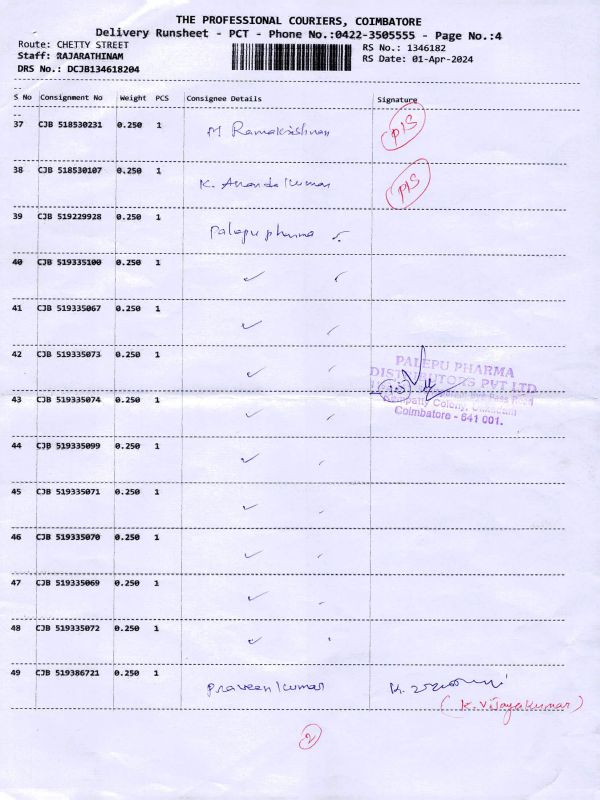 THE PROFESSIONAL COURIERS, COIMBATORE
Delivery Runsheet - PCT - Phone No.:0422-3505555 - Page No.:4
Route: CHETTY STREET RS No.: 1346182
Staff: RAJARATHINAM RS Date: 01-Apr-2024
DRS No.: DCJB134618204
S No Consignment No Weight PCS Consignee Details Signature
37 CJB 518530231 0.250 1 M Ramakrishnan P1S
38 CJB 518530107 0.250 1 K. Anandakumar P1S
39 CJB 519229928 0.250 1 Palepu pharma
40 CJB 519335100 0.250 1 ✓
41 CJB 519335067 0.250 1 ✓
42 CJB 519335073 0.250 1 ✓
PALEPU PHARMA
DISTRIBUTORS PVT LTD
43 CJB 519335074 0.250 1 ✓
Colony,
Coimbatore - 641 001.
44 CJB 519335099 0.250 1 ✓
45 CJB 519335071 0.250 1 ✓
46 CJB 519335070 0.250 1 ✓
47 CJB 519335069 0.250 1 ✓
48 CJB 519335072 0.250 1 ✓
49 CJB 519386721 0.250 1 Praveen kumar
(K. Vijayakumar)
2